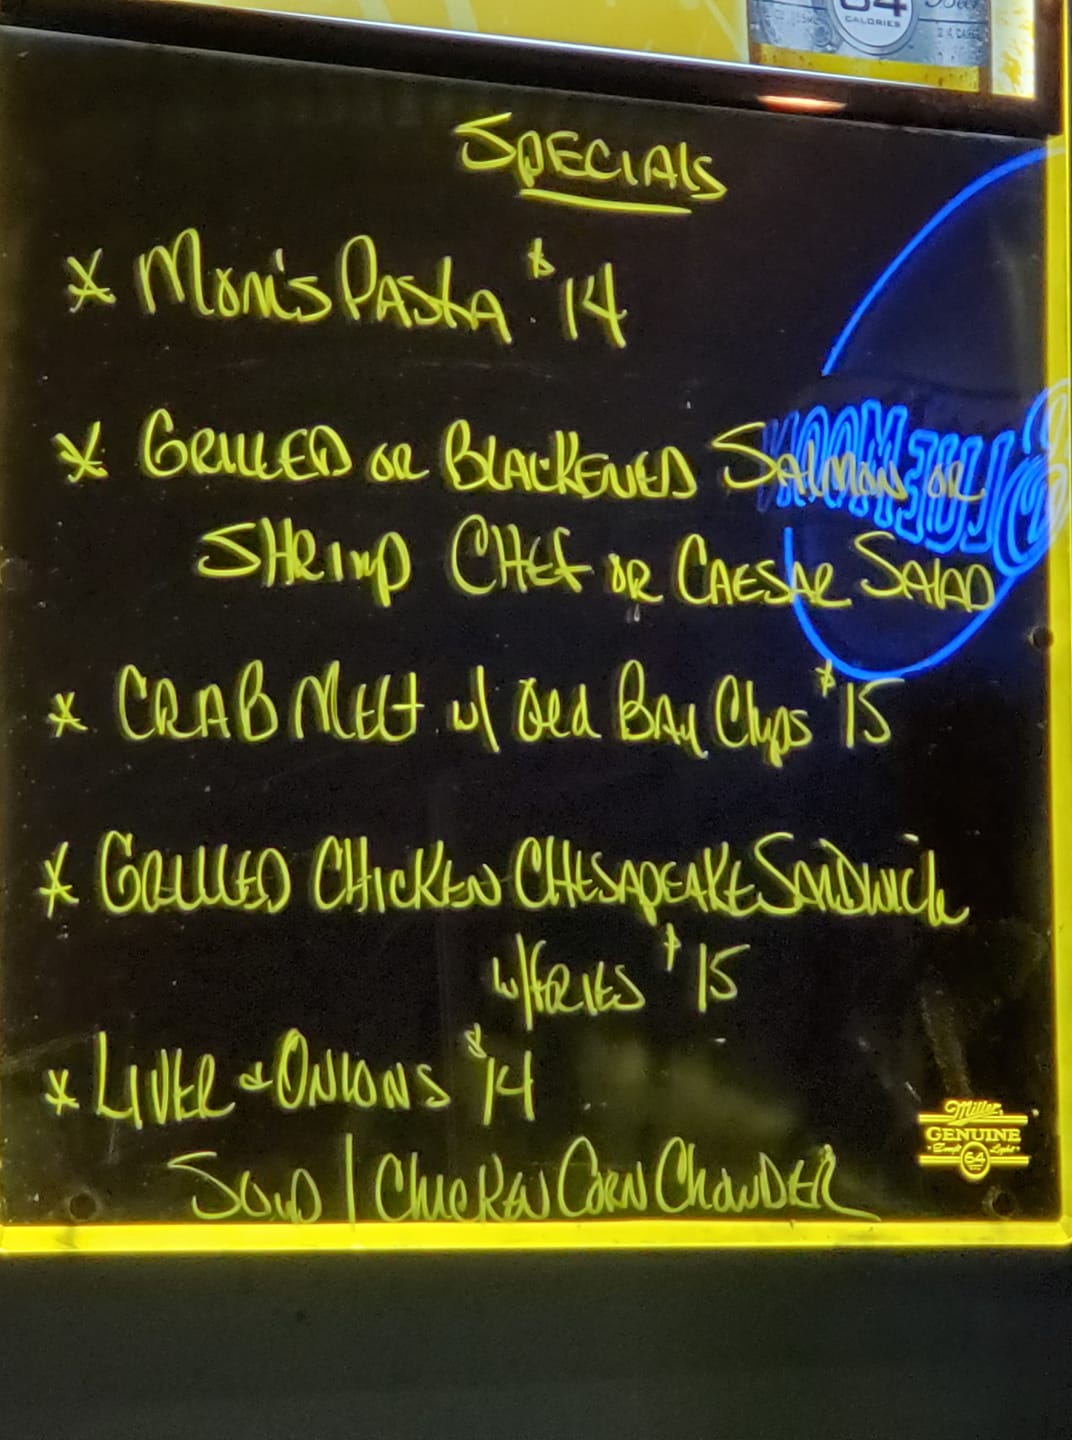 64
CALORIES
Beer
SpECIAls
* Mom's PASTA $14
* GRILLED OR BLACKENED SALMON OR
SHRIMP CHEF OR CAESAR SALAD
BLUE MOON
* CRAB MELT w/ Old BAY Chips $15
* GRILLED CHICKEN CHESAPEAKE SANDWICH
w/FRIES $15
* LIVER & ONIONS $14
Miller
GENUINE
Draft Light
64
SOUP | CHICKEN CORN CHOWDER